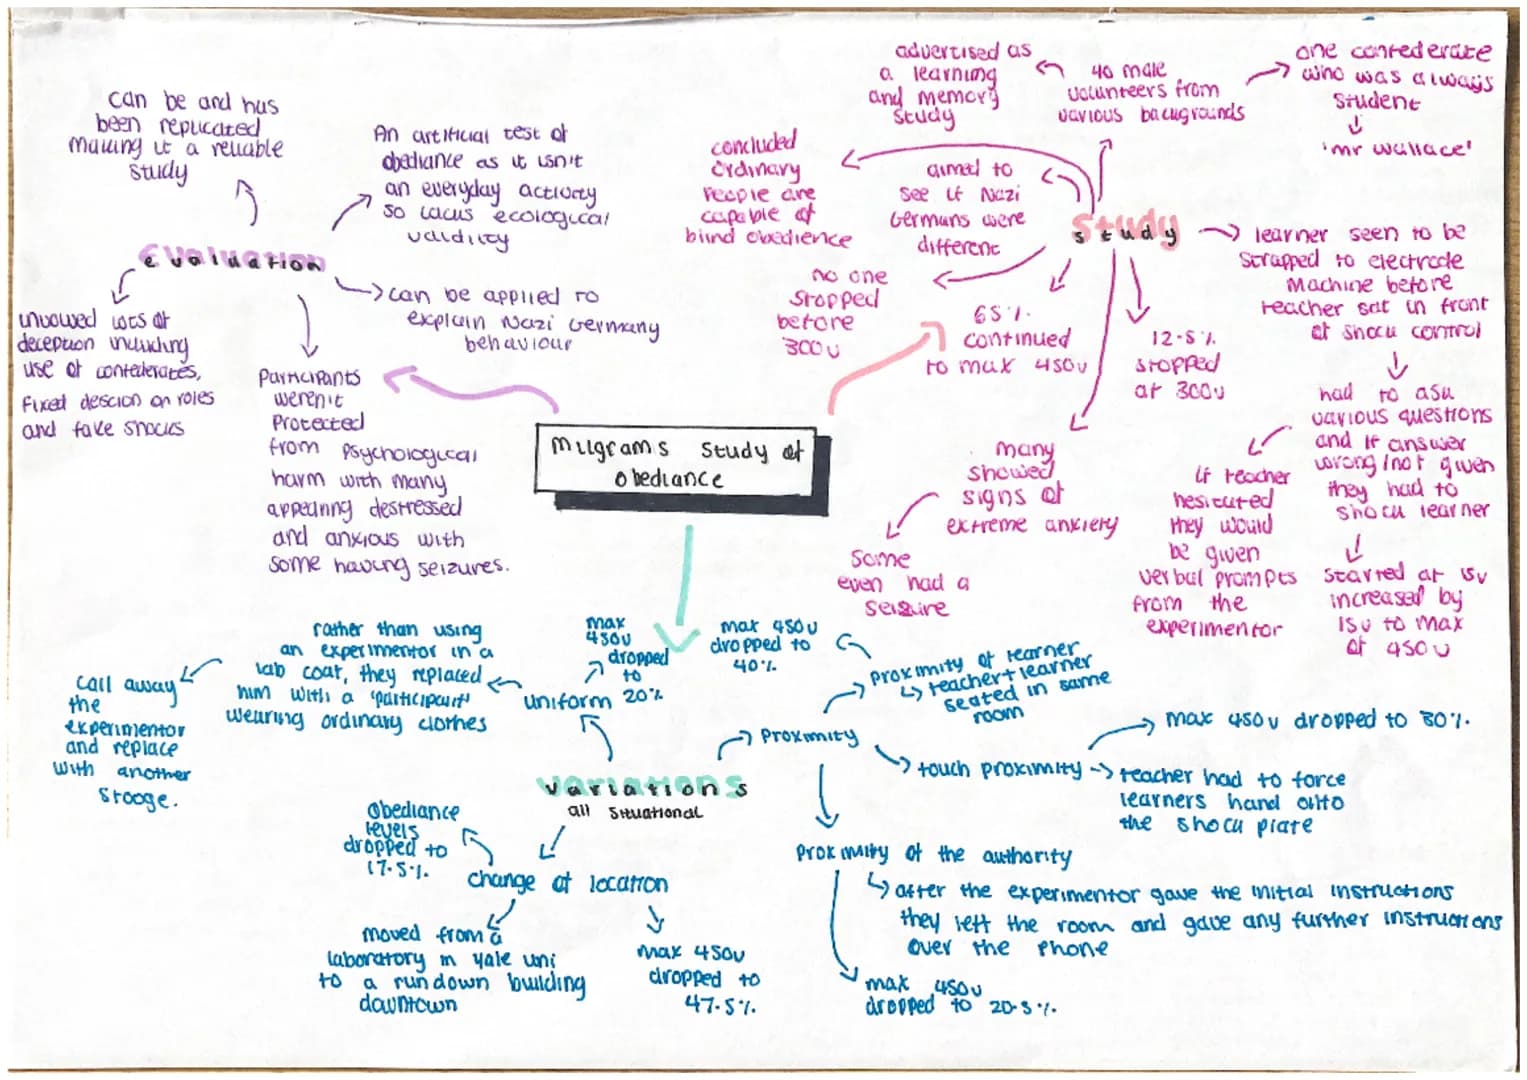 Milgrams study of
obediance
evaluation
can be and has
been replicated
making it a reliable
study
An artificial test of
obediance as it isn't
an everyday activity
so lacks ecological
validity
can be applied to
explain Nazi Germany
behaviour
Participants
weren't
Protected
from psychological
harm with many
appearing destressed
and anxious with
some having seizures.
involved lots of
deception including
use of confederates,
fixed descion on roles
and fake shocks
study
concluded
ordinary
people are
capable of
blind obedience
aimed to
see if Nazi
Germans were
different
40 male
volunteers from
various backgrounds
advertised as
a learning
and memory
study
one confederate
who was always
student
'mr wallace'
learner seen to be
strapped to electrode
Machine before
teacher sat in front
of shock control
had to ask
various questions
and if answer
wrong/not given
they had to
shock learner
If teacher
hesitated
they would
be given
verbal prompts
from the
experimentor
started at 15v
increased by
15v to max
of 450v
12.5%
stopped
at 300v
many
showed
signs of
extreme anxiety
Some
even had a
seizure
65%
continued
to max 450v
no one
stopped
before
300v
variations
all situational
uniform
max
450v
dropped
to
20%
rather than using
an experimentor in a
lab coat, they replaced
him with a 'participant'
wearing ordinary clothes
call away
the
experimentor
and replace
with another
stooge.
Proximity
Proximity of learner
teacher+learner
seated in same
room
max 450v
dropped to
40%
touch proximity
max 450v dropped to 30%.
teacher had to force
learners hand onto
the shock plate
Proximity of the authority
after the experimentor gave the initial instructions
they left the room and gave any further instructions
over the phone
max 450v
dropped to 20.5%.
change of location
obediance
levels
dropped to
17.5%.
moved from a
laboratory in Yale uni
to a rundown building
dauntown
max 450v
dropped to
47.5%.